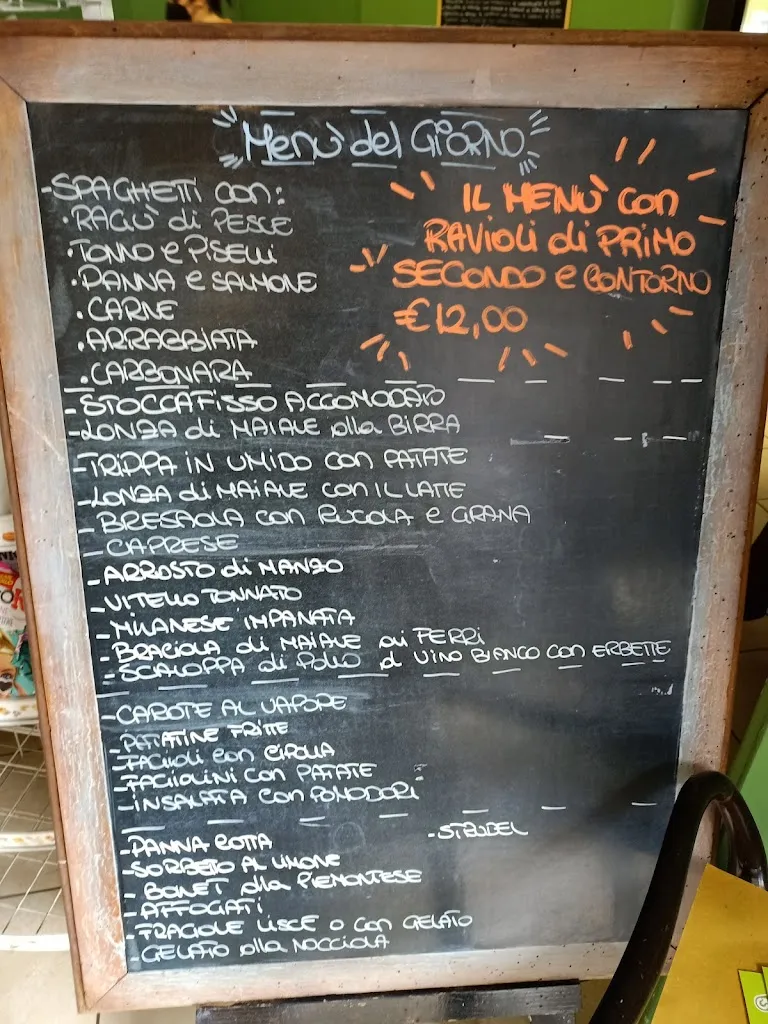 Menù del GiORNO
-SPAGHETTI con:
·RAGÙ di PESCE
·TONNO e PISELLI
·PANNA e SALMONE
·CARNE
·ARRABBIATA
·CARBONARA
IL MENÙ con
RAVIOLI di PRIMO
SECONDO e CONTORNO
€12,00
-STOCCAFISSO ACCOMODATO
-LONZA di MAIALE alla BIRRA
-TRIPPA IN UMIDO con PATATE
-LONZA di MAIALE con IL LATTE
-BRESAOLA con RUCOLA e GRANA
-CAPRESE
-ARROSTO di MANZO
-VITELLO TONNATO
-MILANESE IMPANATA
-BRACIOLA di MAIALE ai FERRi
-SCALOPPA di POLLO al VINO BIANCO con ERBETTE
-CAROTE AL VAPORE
-PATATINE FRITTE
-FAGIOLI con CIPOLLA
-FAGIOLINI con PATATE
-INSALATA con POMODORi
-PANNA COTTA
-STRUDEL
-SORBETO AL LIMONE
-BONET alla PIEMONTESE
-AFFOGATi
-FRAGOLE LISCE o con GELATO
-GELATO alla NOCCIOLA